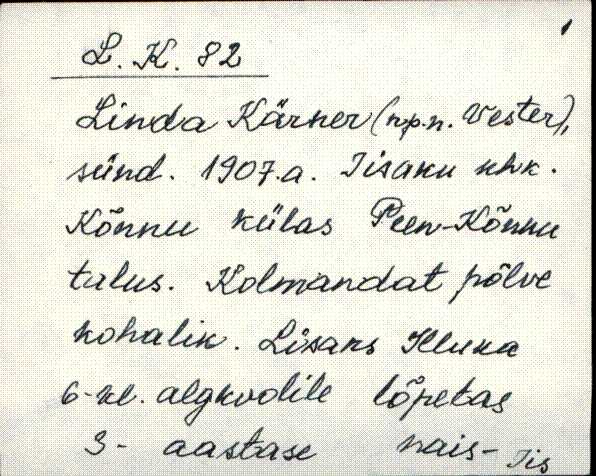 1
L. K. 82
Linda Kärner (n.p.n. Vester),
sünd. 1907.a. Iisaku khk.
Kõnnu külas Peen-Kõnnu
talus. Kolmandat põlve
kohalik. Lisaks Illuka
6-kl. algkoolile lõpetas
3- aastase nais-
Iis